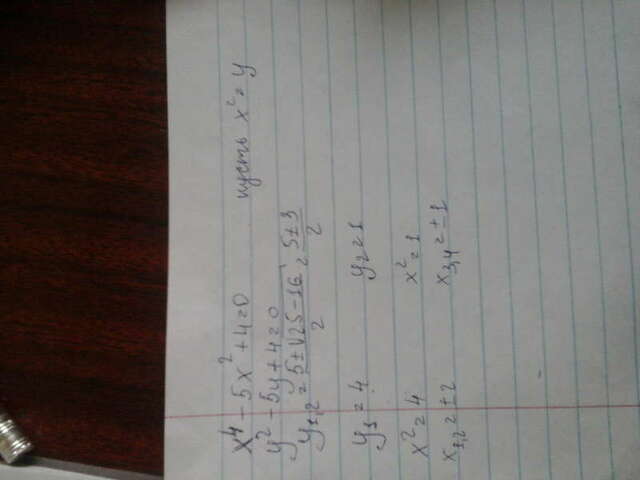 x⁴ - 5x² + 4 = 0 пусть x² = y
y² - 5y + 4 = 0
y₁,₂ = (5 ± √25 - 16)/2 = (5 ± 3)/2
y₁ = 4 y₂ = 1
x² = 4 x² = 1
x₁,₂ = ± 2 x₃,₄ = ± 1